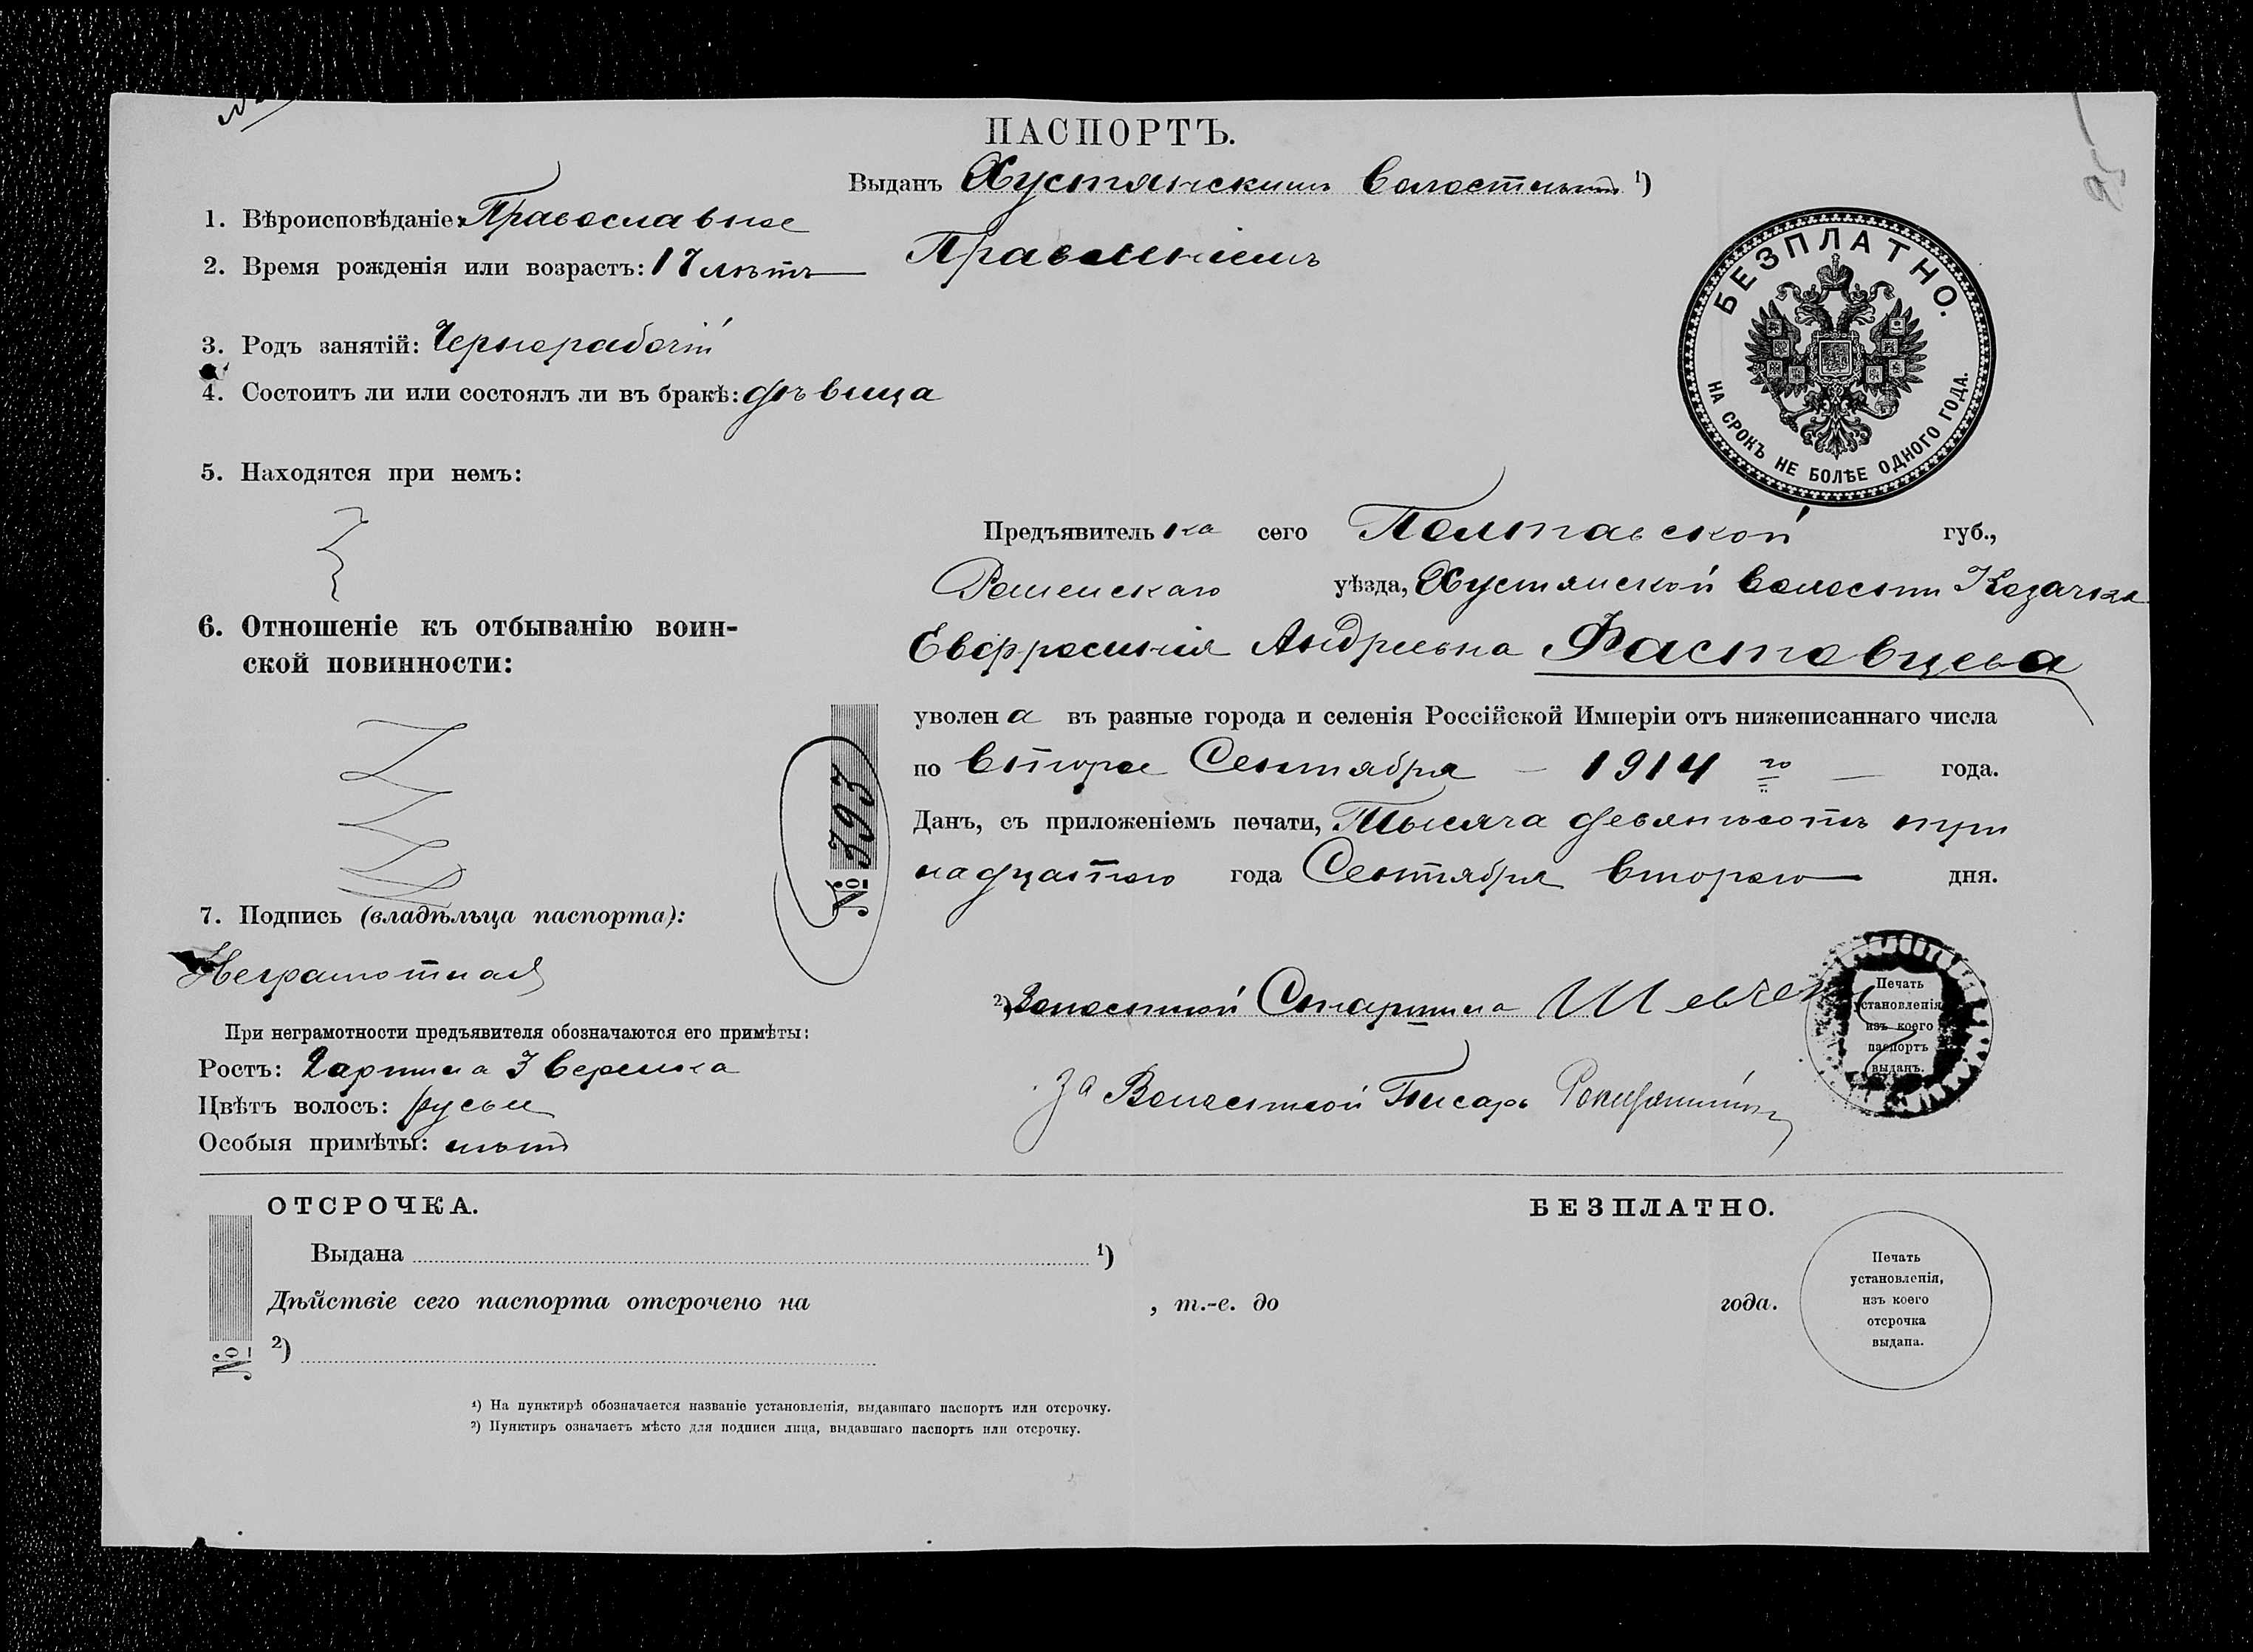 ПАСПОРТЪ.
Выданъ Хустянскимъ Волостнымъ ¹)
Правленіемъ
1. Вѣроисповѣданіе: Православное
2. Время рожденія или возрастъ: 17 лѣтъ
3. Родъ занятій: Чернорабочій
4. Состоитъ ли или состоялъ ли въ бракѣ: дѣвица
5. Находятся при немъ:
6. Отношеніе къ отбыванію воин-
ской повинности:
7. Подпись (владѣльца паспорта):
Неграмотная
При неграмотности предъявителя обозначаются его примѣты:
Ростъ: 2 аршина 3 вершка
Цвѣтъ волосъ: русые
Особыя примѣты: нѣтъ
БЕЗПЛАТНО.
НА СРОКЪ НЕ БОЛѢЕ ОДНОГО ГОДА.
Предъявитель ка сего Полтавской губ.,
Роменскаго уѣзда, Хустянской волости Козачка
Евфросинія Андреевна Фастовцева
уволен а въ разные города и селенія Россійской Имперіи отъ нижеписаннаго числа
по второе Сентября 1914 го года.
Данъ, съ приложеніемъ печати, Тысяча девятьсотъ три
надцатаго года Сентября второго дня.
№ 393
²) Волостной Старшина
За Волостной Писарь
Печать
установленія
изъ коего
паспортъ
выданъ.
ОТСРОЧКА.
БЕЗПЛАТНО.
Выдана ¹)
Дѣйствіе сего паспорта отсрочено на , т.-е. до года.
№ ²)
Печать
установленія,
изъ коего
отсрочка
выдана.
¹) На пунктирѣ обозначается названіе установленія, выдавшаго паспортъ или отсрочку.
²) Пунктиръ означаетъ мѣсто для подписи лица, выдавшаго паспортъ или отсрочку.